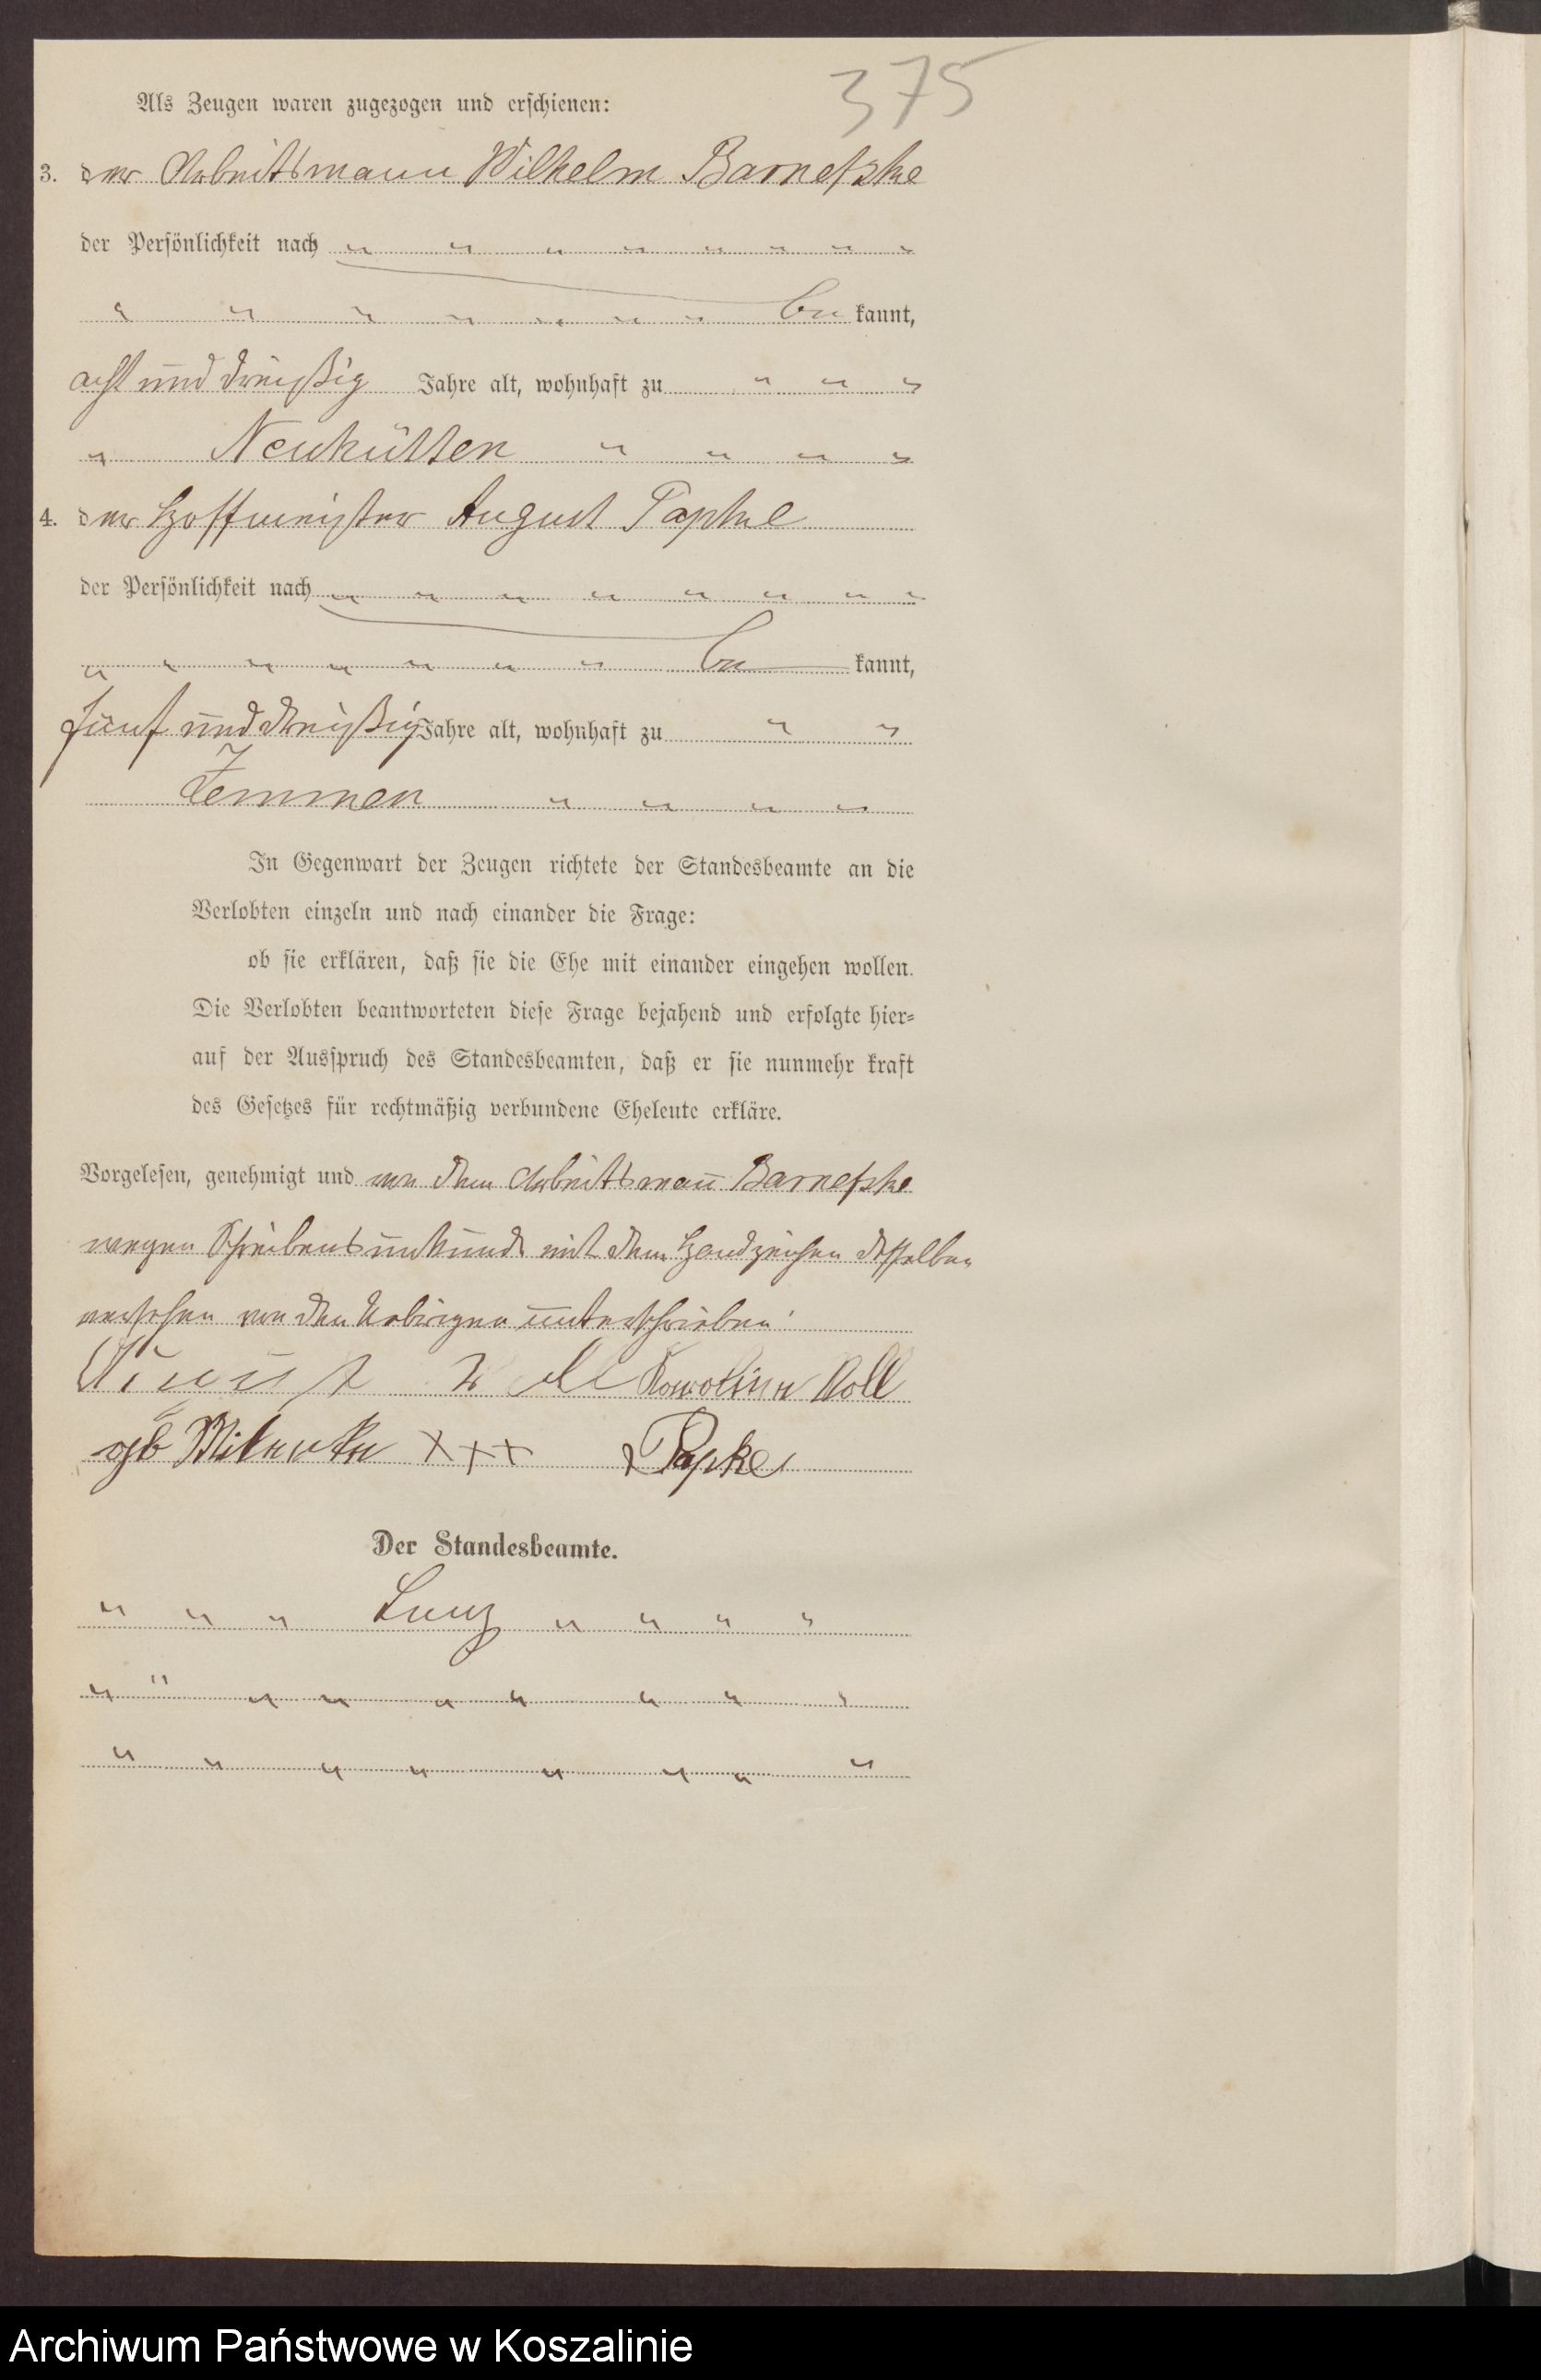 375
Als Zeugen waren zugezogen und erschienen:
3. der Arbeitsmann Wilhelm Barnetzke
der Persönlichkeit nach " " " " " " " "
" " " " " " " be kannt,
acht und dreißig Jahre alt, wohnhaft zu " " "
" Neuhütten " " " "
4. der Hoffmeister August Papke
der Persönlichkeit nach " " " " " " " "
" " " " " " " be kannt,
fünf und dreißig Jahre alt, wohnhaft zu " "
Zemmen " " " "
In Gegenwart der Zeugen richtete der Standesbeamte an die
Verlobten einzeln und nach einander die Frage:
ob sie erklären, daß sie die Ehe mit einander eingehen wollen.
Die Verlobten beantworteten diese Frage bejahend und erfolgte hier-
auf der Ausspruch des Standesbeamten, daß er sie nunmehr kraft
des Gesetzes für rechtmäßig verbundene Eheleute erkläre.
Vorgelesen, genehmigt und von dem Arbeitsmañ Barnetzke
wegen Schreibensunkunde mit dem Handzeichen desselben
versehen von den Uebrigen unterschrieben
Karoline Koll
geb XXX Papke
Der Standesbeamte.
" " " " " " "
" " " " " " " " "
" " " " " " " "
Archiwum Państwowe w Koszalinie